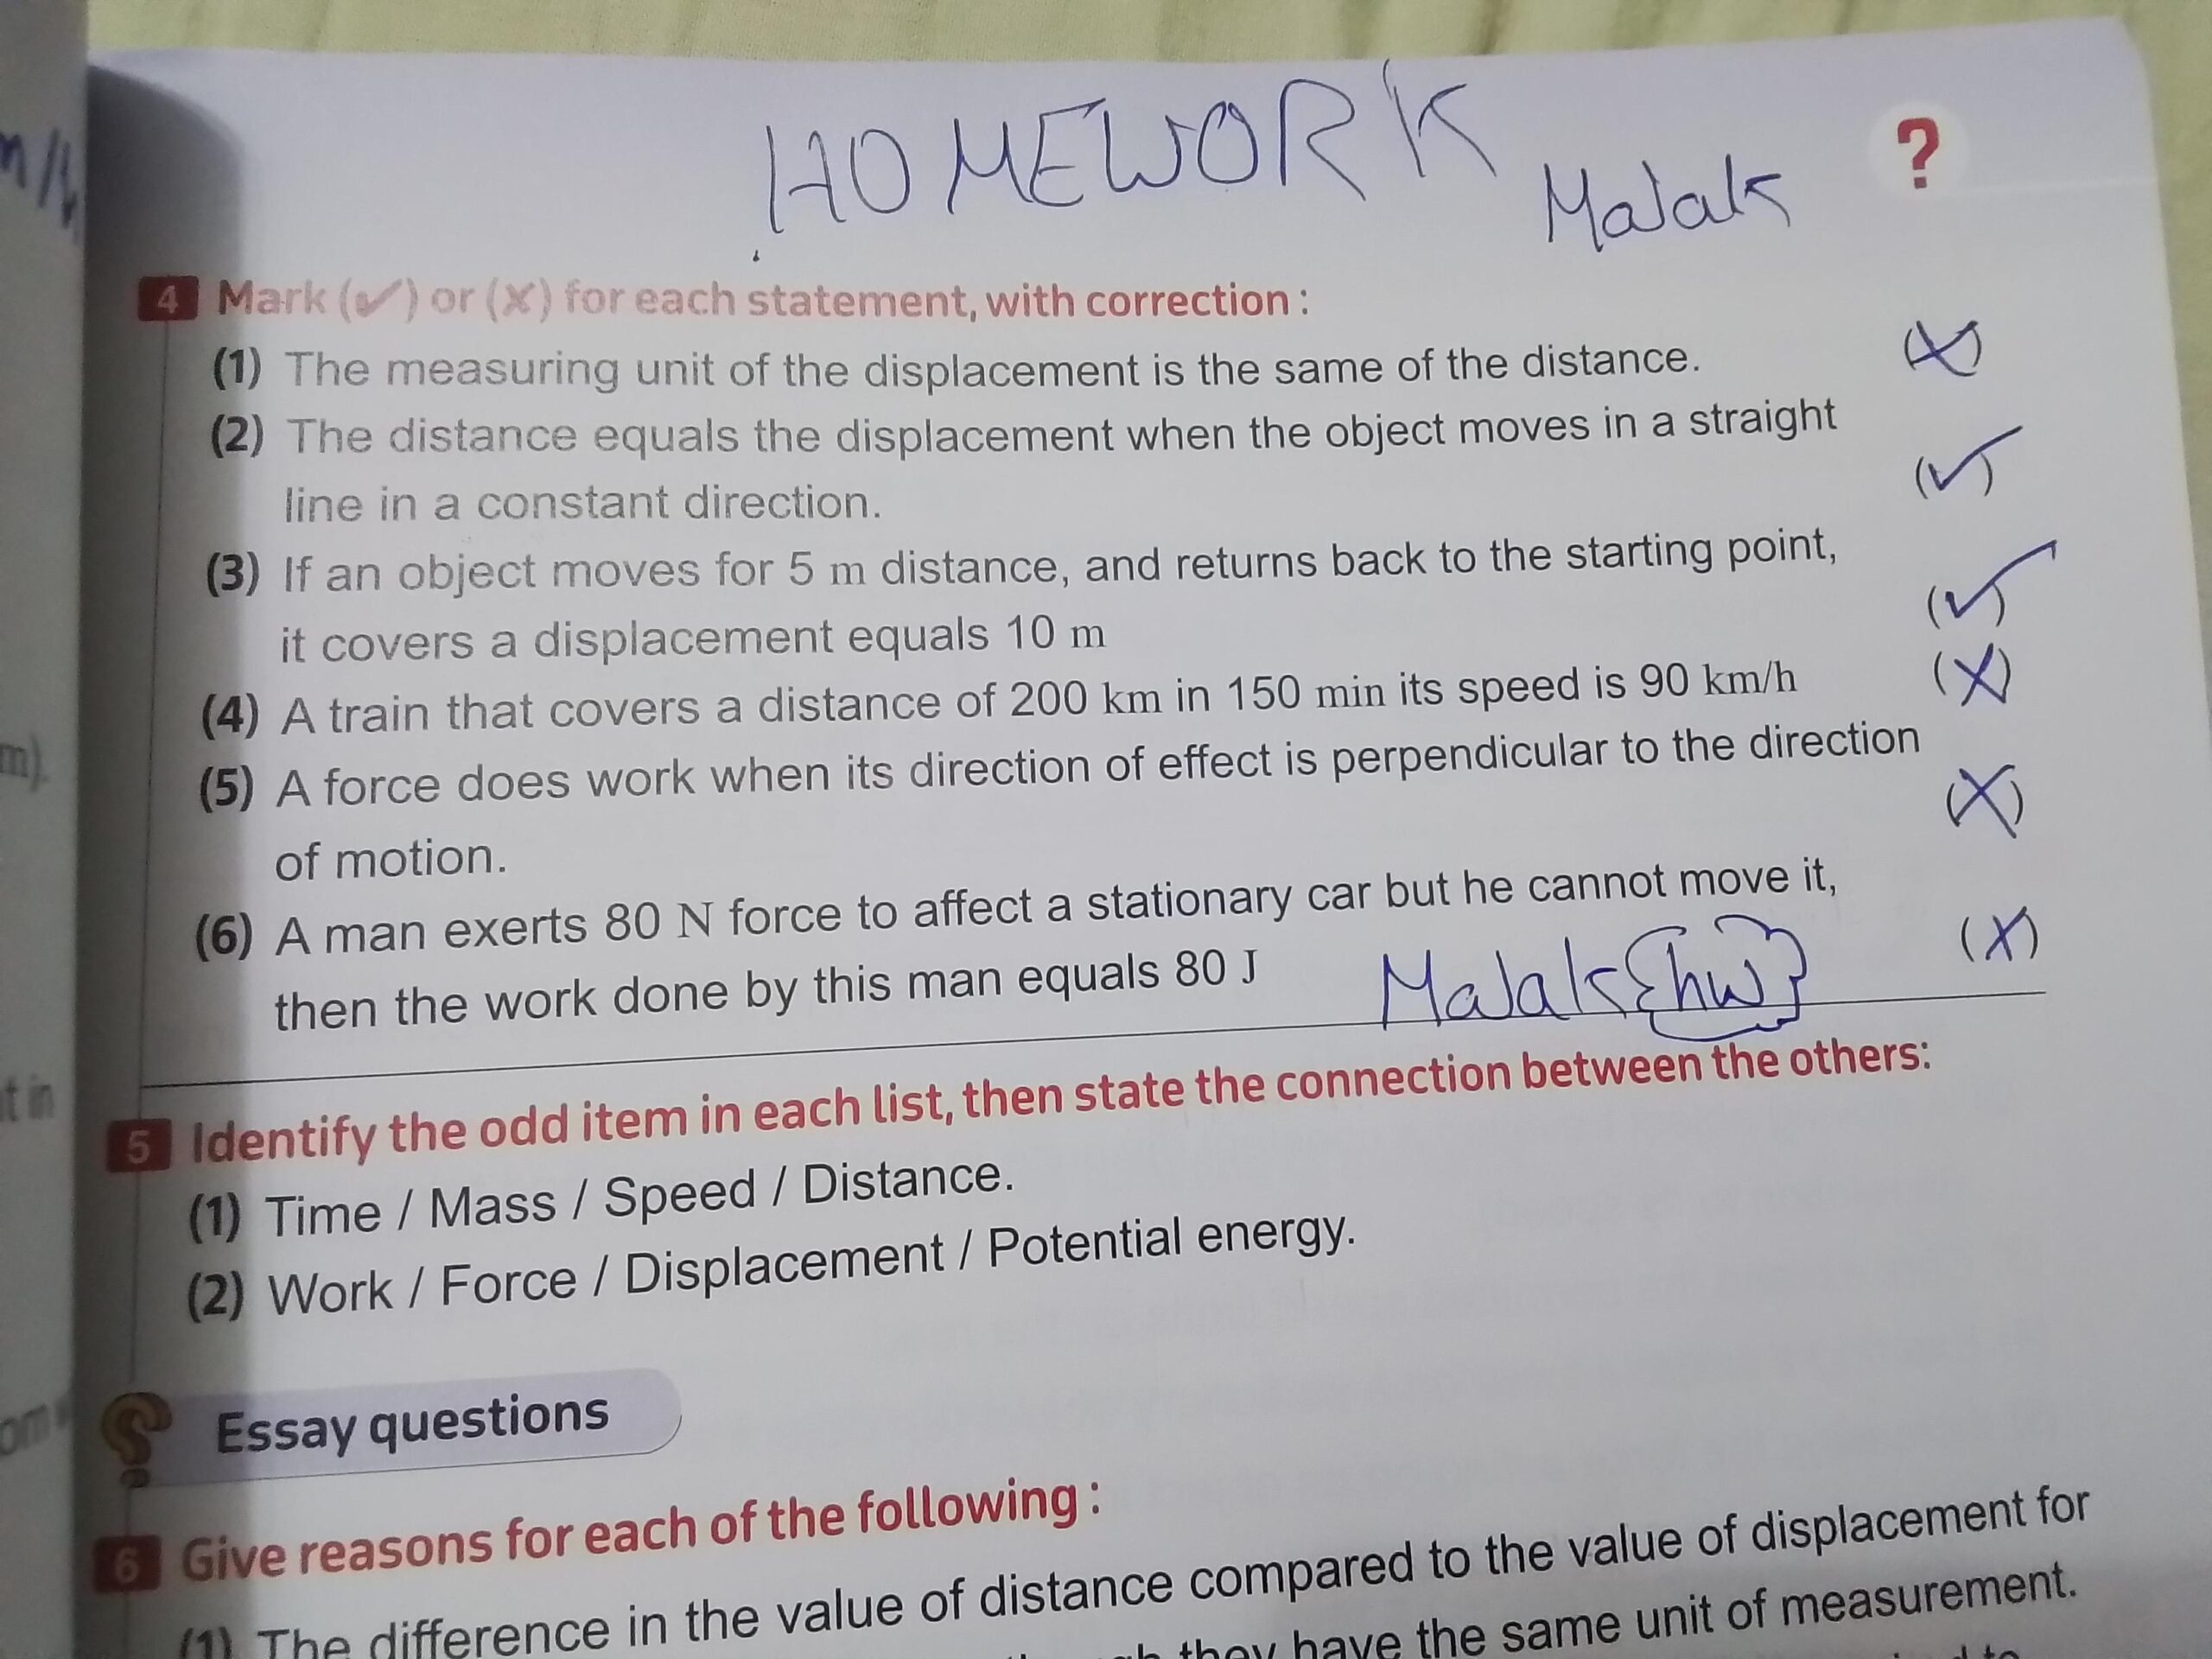 HOMEWORK
Malak
?
4 Mark (✓) or (x) for each statement, with correction :
(1) The measuring unit of the displacement is the same of the distance. (x)
(2) The distance equals the displacement when the object moves in a straight
line in a constant direction. (✓)
(3) If an object moves for 5 m distance, and returns back to the starting point,
it covers a displacement equals 10 m (✓)
(4) A train that covers a distance of 200 km in 150 min its speed is 90 km/h (x)
(5) A force does work when its direction of effect is perpendicular to the direction
of motion. (x)
(6) A man exerts 80 N force to affect a stationary car but he cannot move it,
then the work done by this man equals 80 J Malak {hw} (x)
5 Identify the odd item in each list, then state the connection between the others:
(1) Time / Mass / Speed / Distance.
(2) Work / Force / Displacement / Potential energy.
Essay questions
6 Give reasons for each of the following :
(1) The difference in the value of distance compared to the value of displacement for
they have the same unit of measurement.